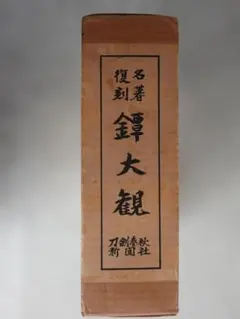 名著
復刻
鐔大観
刀剣春秋
新聞社